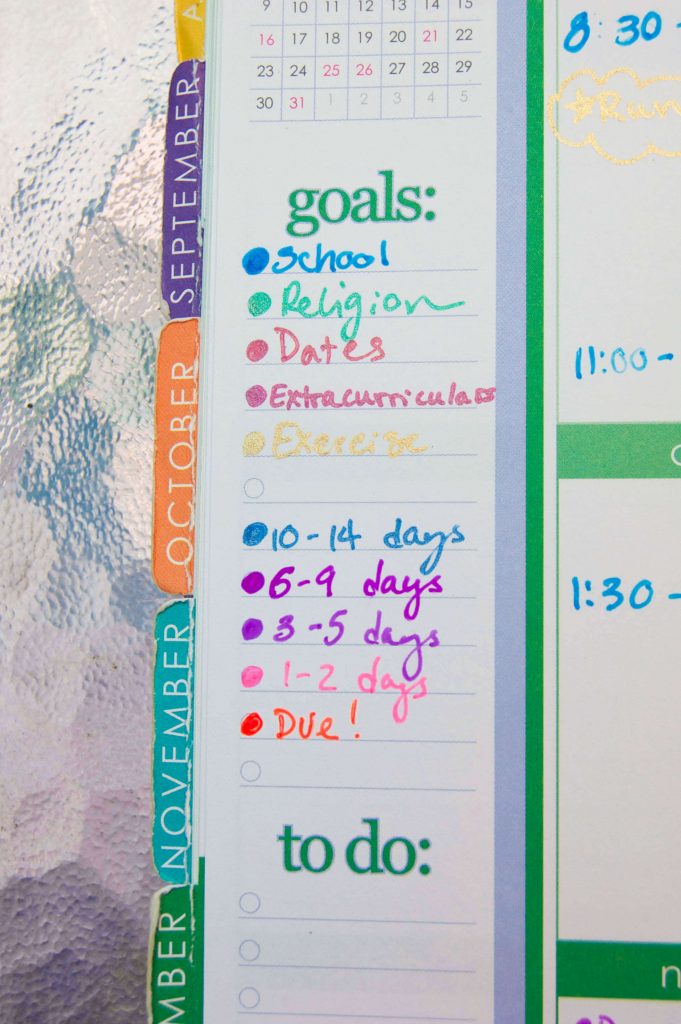 9 10 11 12 13 14 15
16 17 18 19 20 21 22
23 24 25 26 27 28 29
30 31 1 2 3 4 5
goals:
School
Religion
Dates
Extracurriculars
Exercise
10-14 days
6-9 days
3-5 days
1-2 days
Due!
to do:
A
SEPTEMBER
OCTOBER
NOVEMBER
MBER
8:30-
Run
11:00-
1:30-
n